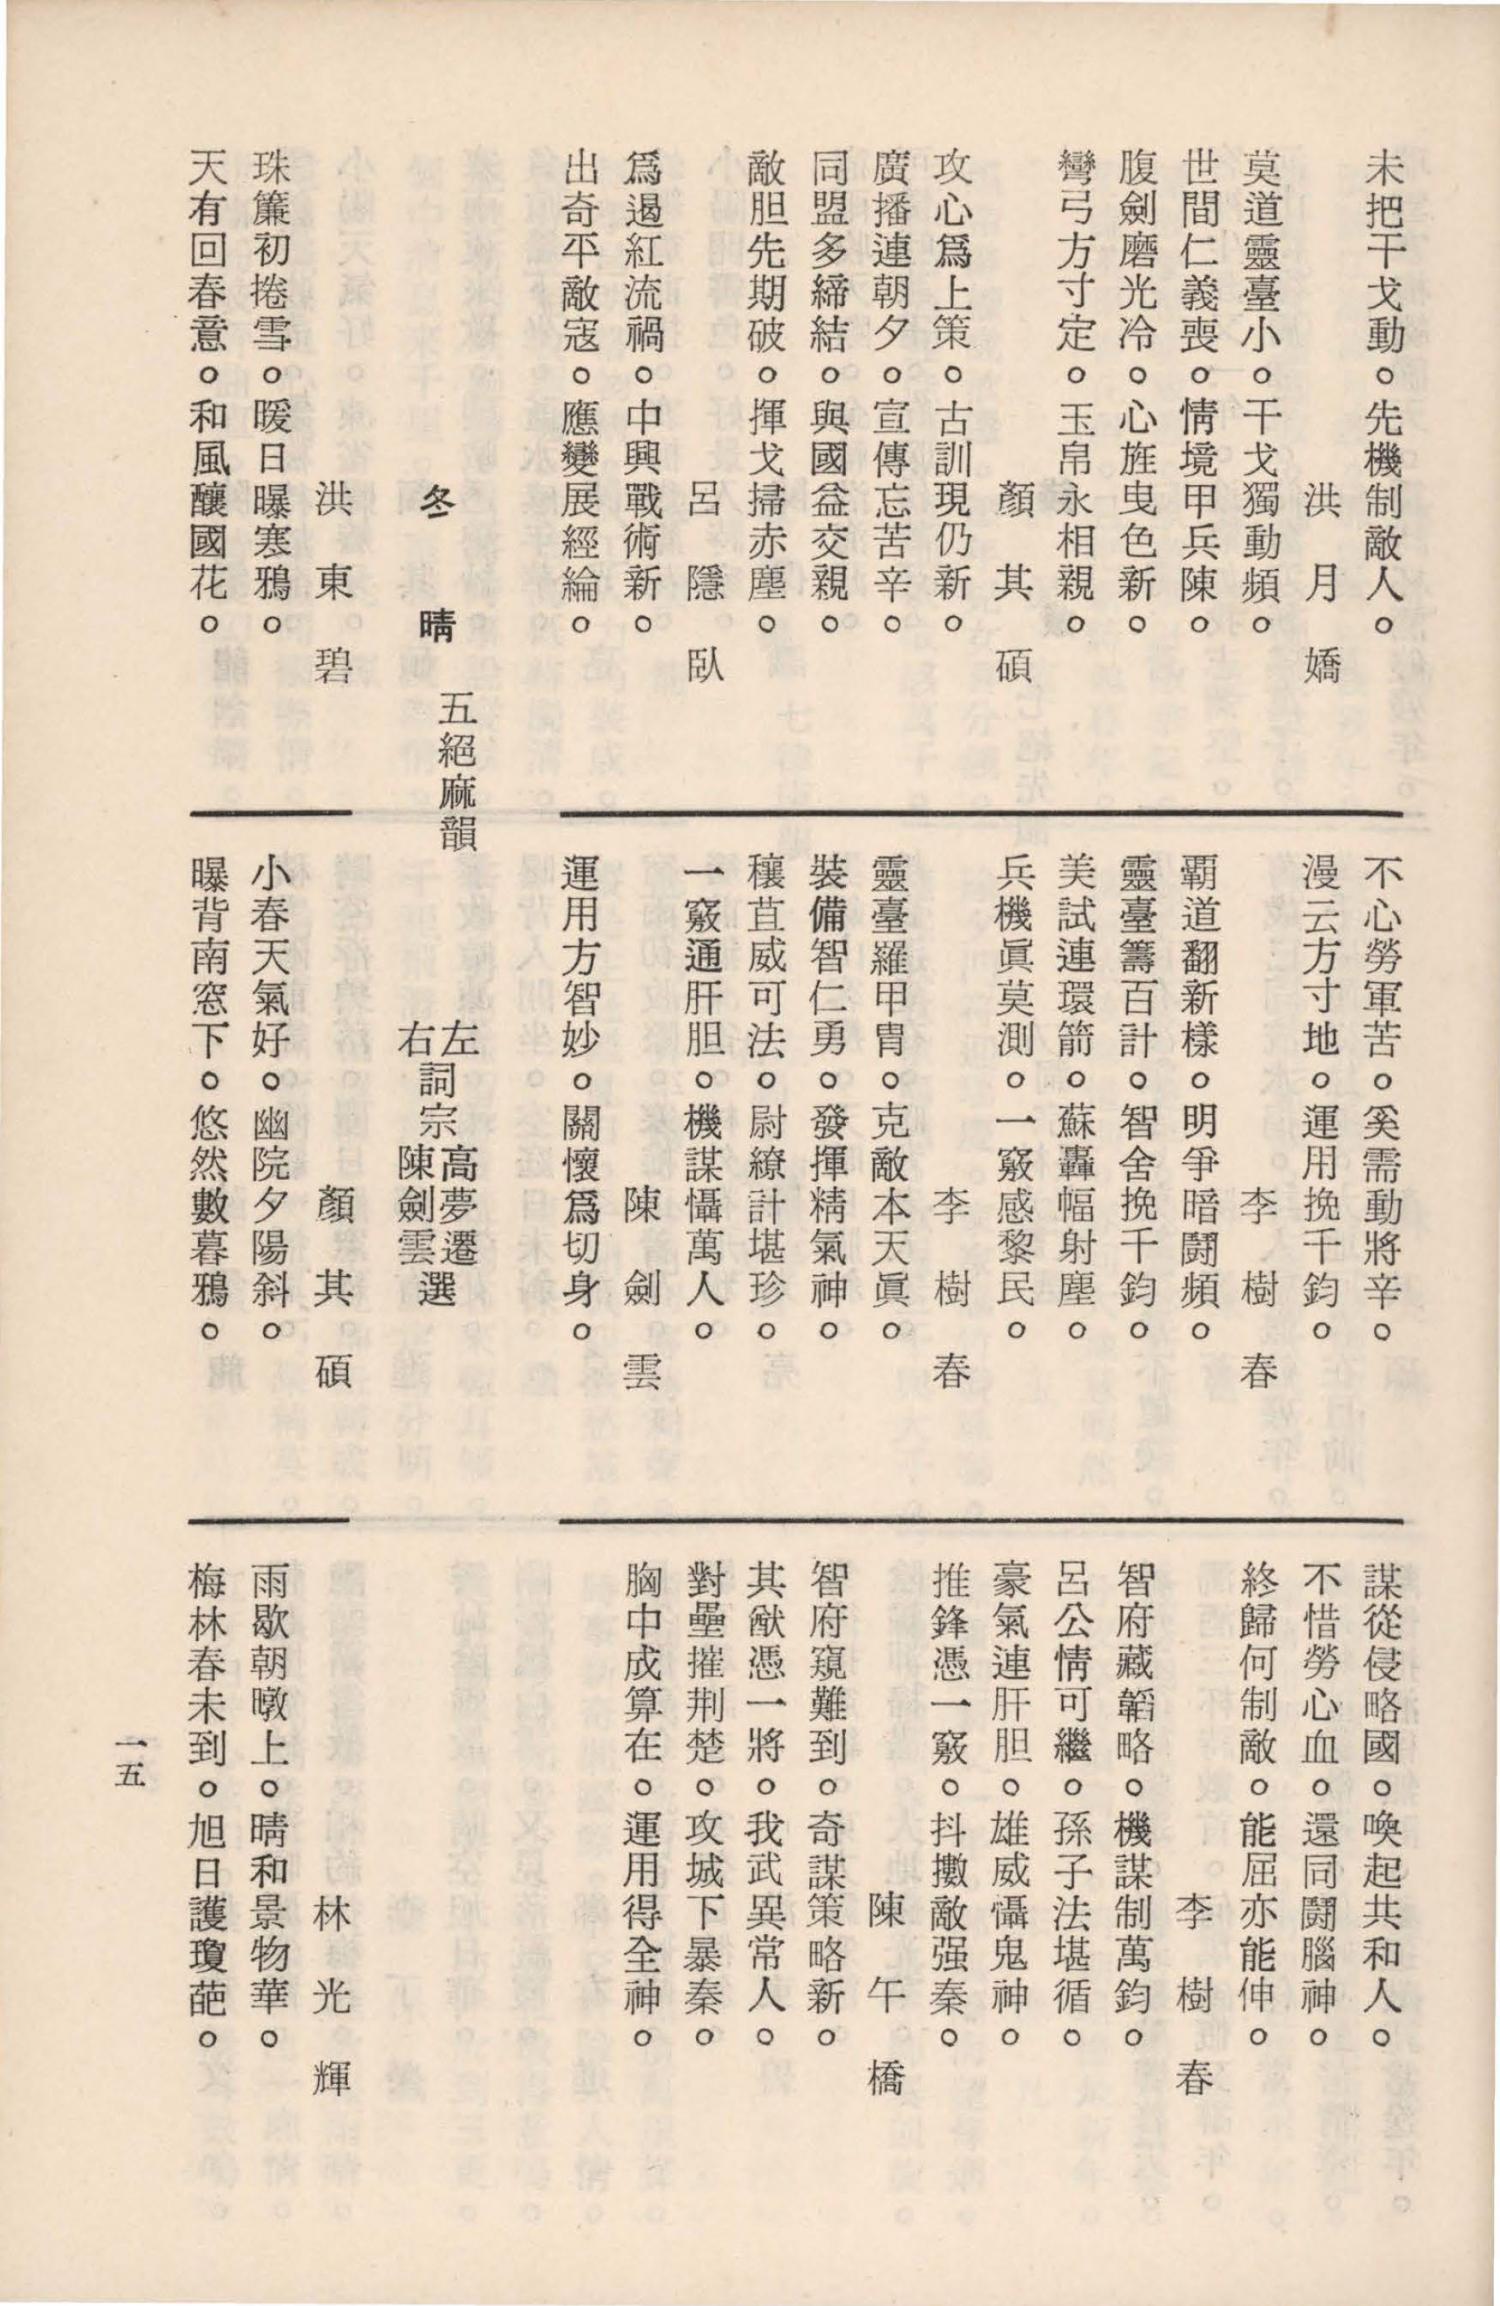 未把干戈動。先機制敵人。
洪月嬌
莫道靈臺小。干戈獨動頻。
世間仁義喪。情境甲兵陳。
腹劍磨光冷。心旌曳色新。
彎弓方寸定。玉帛永相親。
顏其碩
攻心爲上策。古訓現仍新。
廣播連朝夕。宣傳忘苦辛。
同盟多締結。與國益交親。
敵胆先期破。揮戈掃赤塵。
呂隱臥
爲遏紅流禍。中興戰術新。
出奇平敵寇。應變展經綸。
不心勞軍苦。奚需動將辛。
漫云方寸地。運用挽千鈞。
李樹春
覇道翻新樣。明爭暗鬪頻。
靈臺籌百計。智舍挽千鈞。
美試連環箭。蘇轟幅射塵。
兵機眞莫測。一竅感黎民。
李樹春
靈臺羅甲胄。克敵本天眞。
裝備智仁勇。發揮精氣神。
穰苴威可法。尉繚計堪珍。
一竅通肝胆。機謀懾萬人。
陳劍雲
運用方智妙。關懷爲切身。
謀從侵略國。喚起共和人。
不惜勞心血。還同鬪腦神。
終歸何制敵。能屈亦能伸。
李樹春
智府藏韜略。機謀制萬鈞。
呂公情可繼。孫子法堪循。
豪氣連肝胆。雄威懾鬼神。
推鋒憑一竅。抖擻敵强秦。
陳午橋
智府窺難到。奇謀策略新。
其猷憑一將。我武異常人。
對壘摧荆楚。攻城下暴秦。
胸中成算在。運用得全神。
冬晴 五絕麻韻
左右詞宗高夢遷陳劍雲選
洪東碧
珠簾初捲雪。暖日曝寒鴉。
天有回春意。和風釀國花。
顏其碩
小春天氣好。幽院夕陽斜。
曝背南窓下。悠然數暮鴉。
林光輝
雨歇朝暾上。晴和景物華。
梅林春未到。旭日護瓊葩。
一五